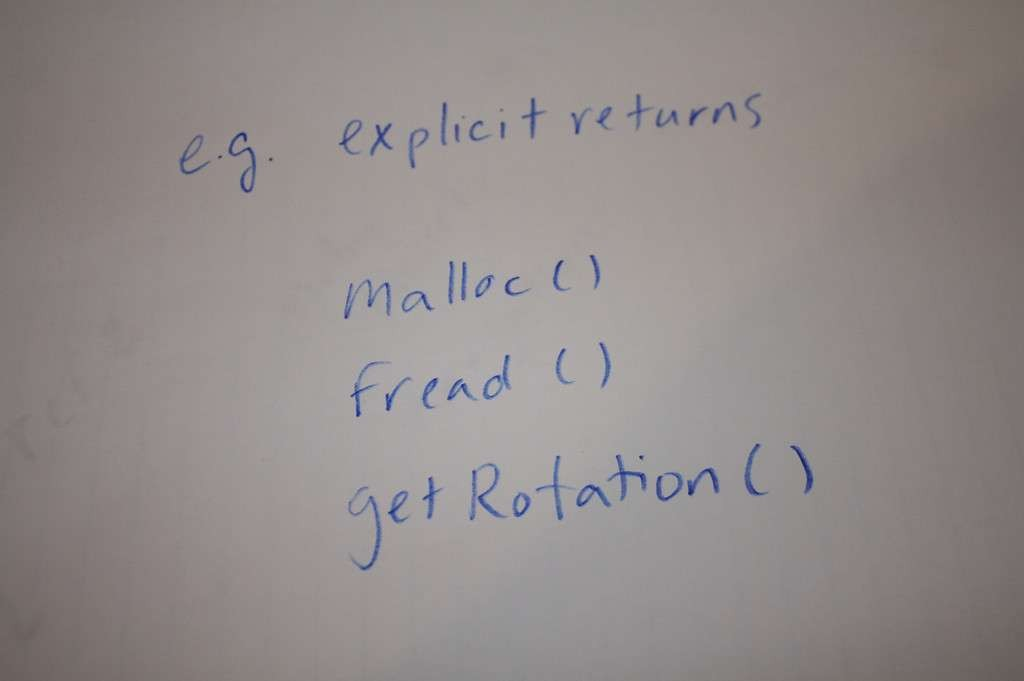 e.g. explicit returns
malloc()
fread ()
getRotation()